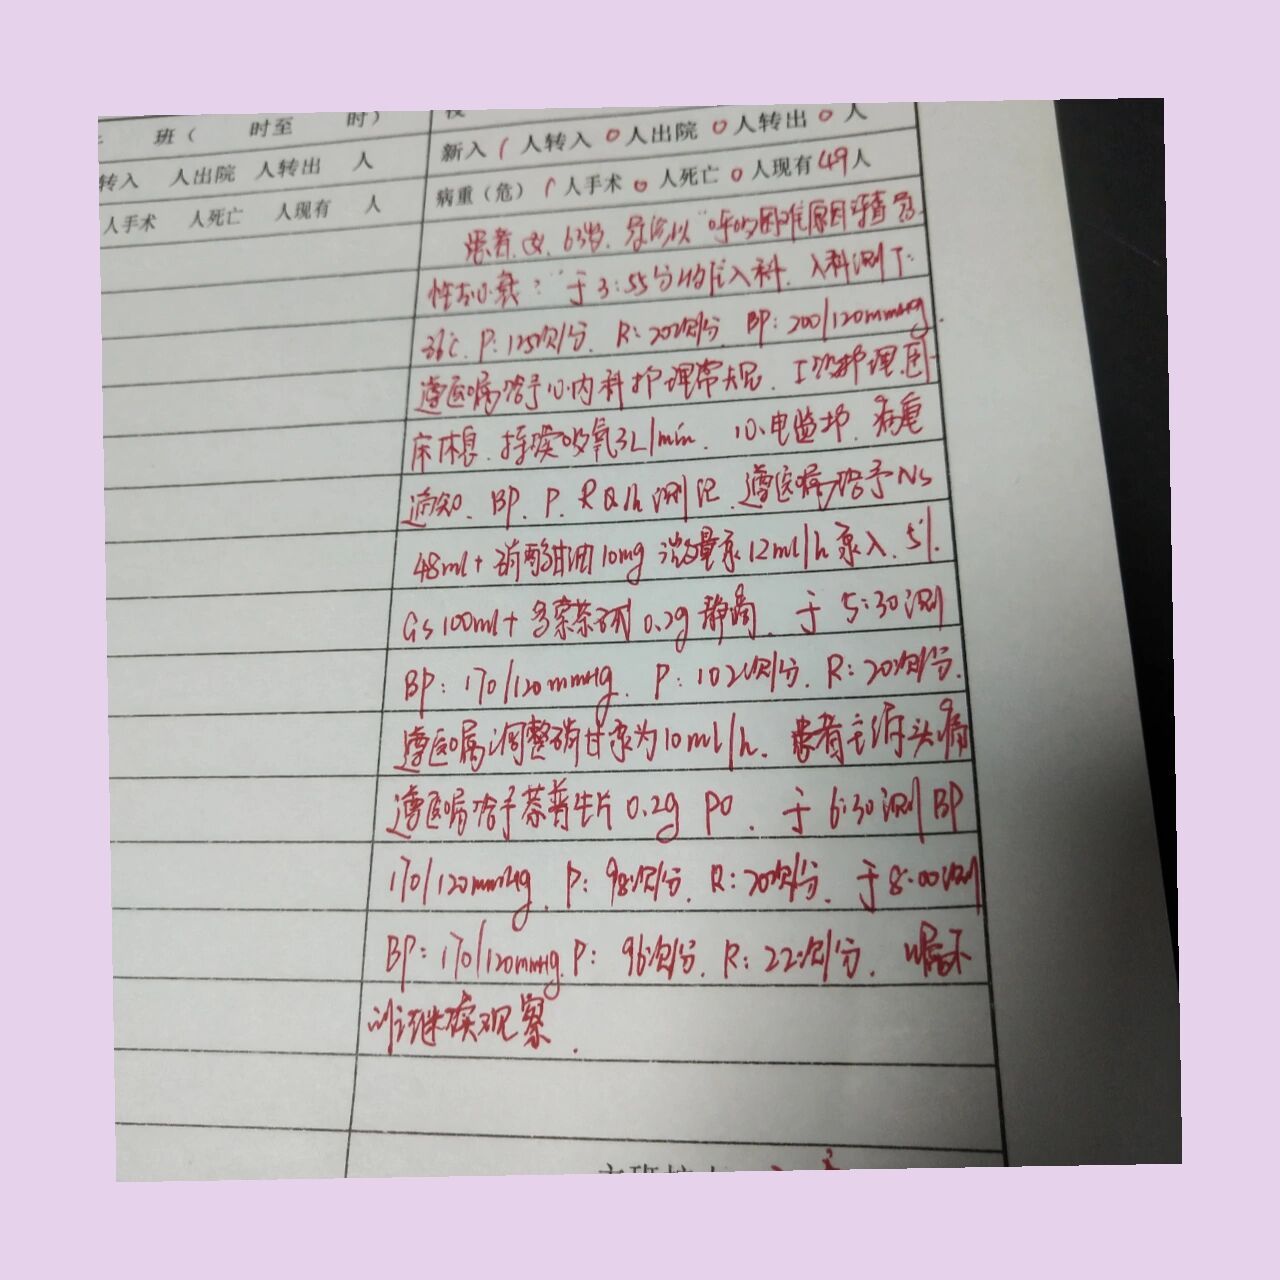 班（ 时至 时）
转入 人出院 人转出 人
人手术 人死亡 人现有 人
新入 1 人转入 0 人出院 0 人转出 0 人
病重（危） 1 人手术 0 人死亡 0 人现有 49 人
患者，女，63岁，急诊以"呼吸困难原因待查 急
性心衰？"于3:55分收住入科，入科测T:
36℃ P:125次/分 R:20次/分 BP:200/120mmHg.
遵医嘱给予心内科护理常规，I级护理，
床休息，持续吸氧3L/min，心电监护，病重
通知，BP、P、R Q1h测记，遵医嘱给予NS
48ml+硝酸甘油10mg 微量泵12ml/h泵入，5%
GS100ml+多索茶碱0.2g静滴，于5:30测
BP:170/120mmHg，P:102次/分，R:20次/分.
遵医嘱调整硝甘泵为10ml/h，患者主诉头痛
遵医嘱给予萘普生片0.2g PO，于6:30测BP
170/120mmHg，P:98次/分，R:20次/分，于8:00测
BP:170/120mmHg，P:96次/分，R:22次/分，嘱不
继续观察.